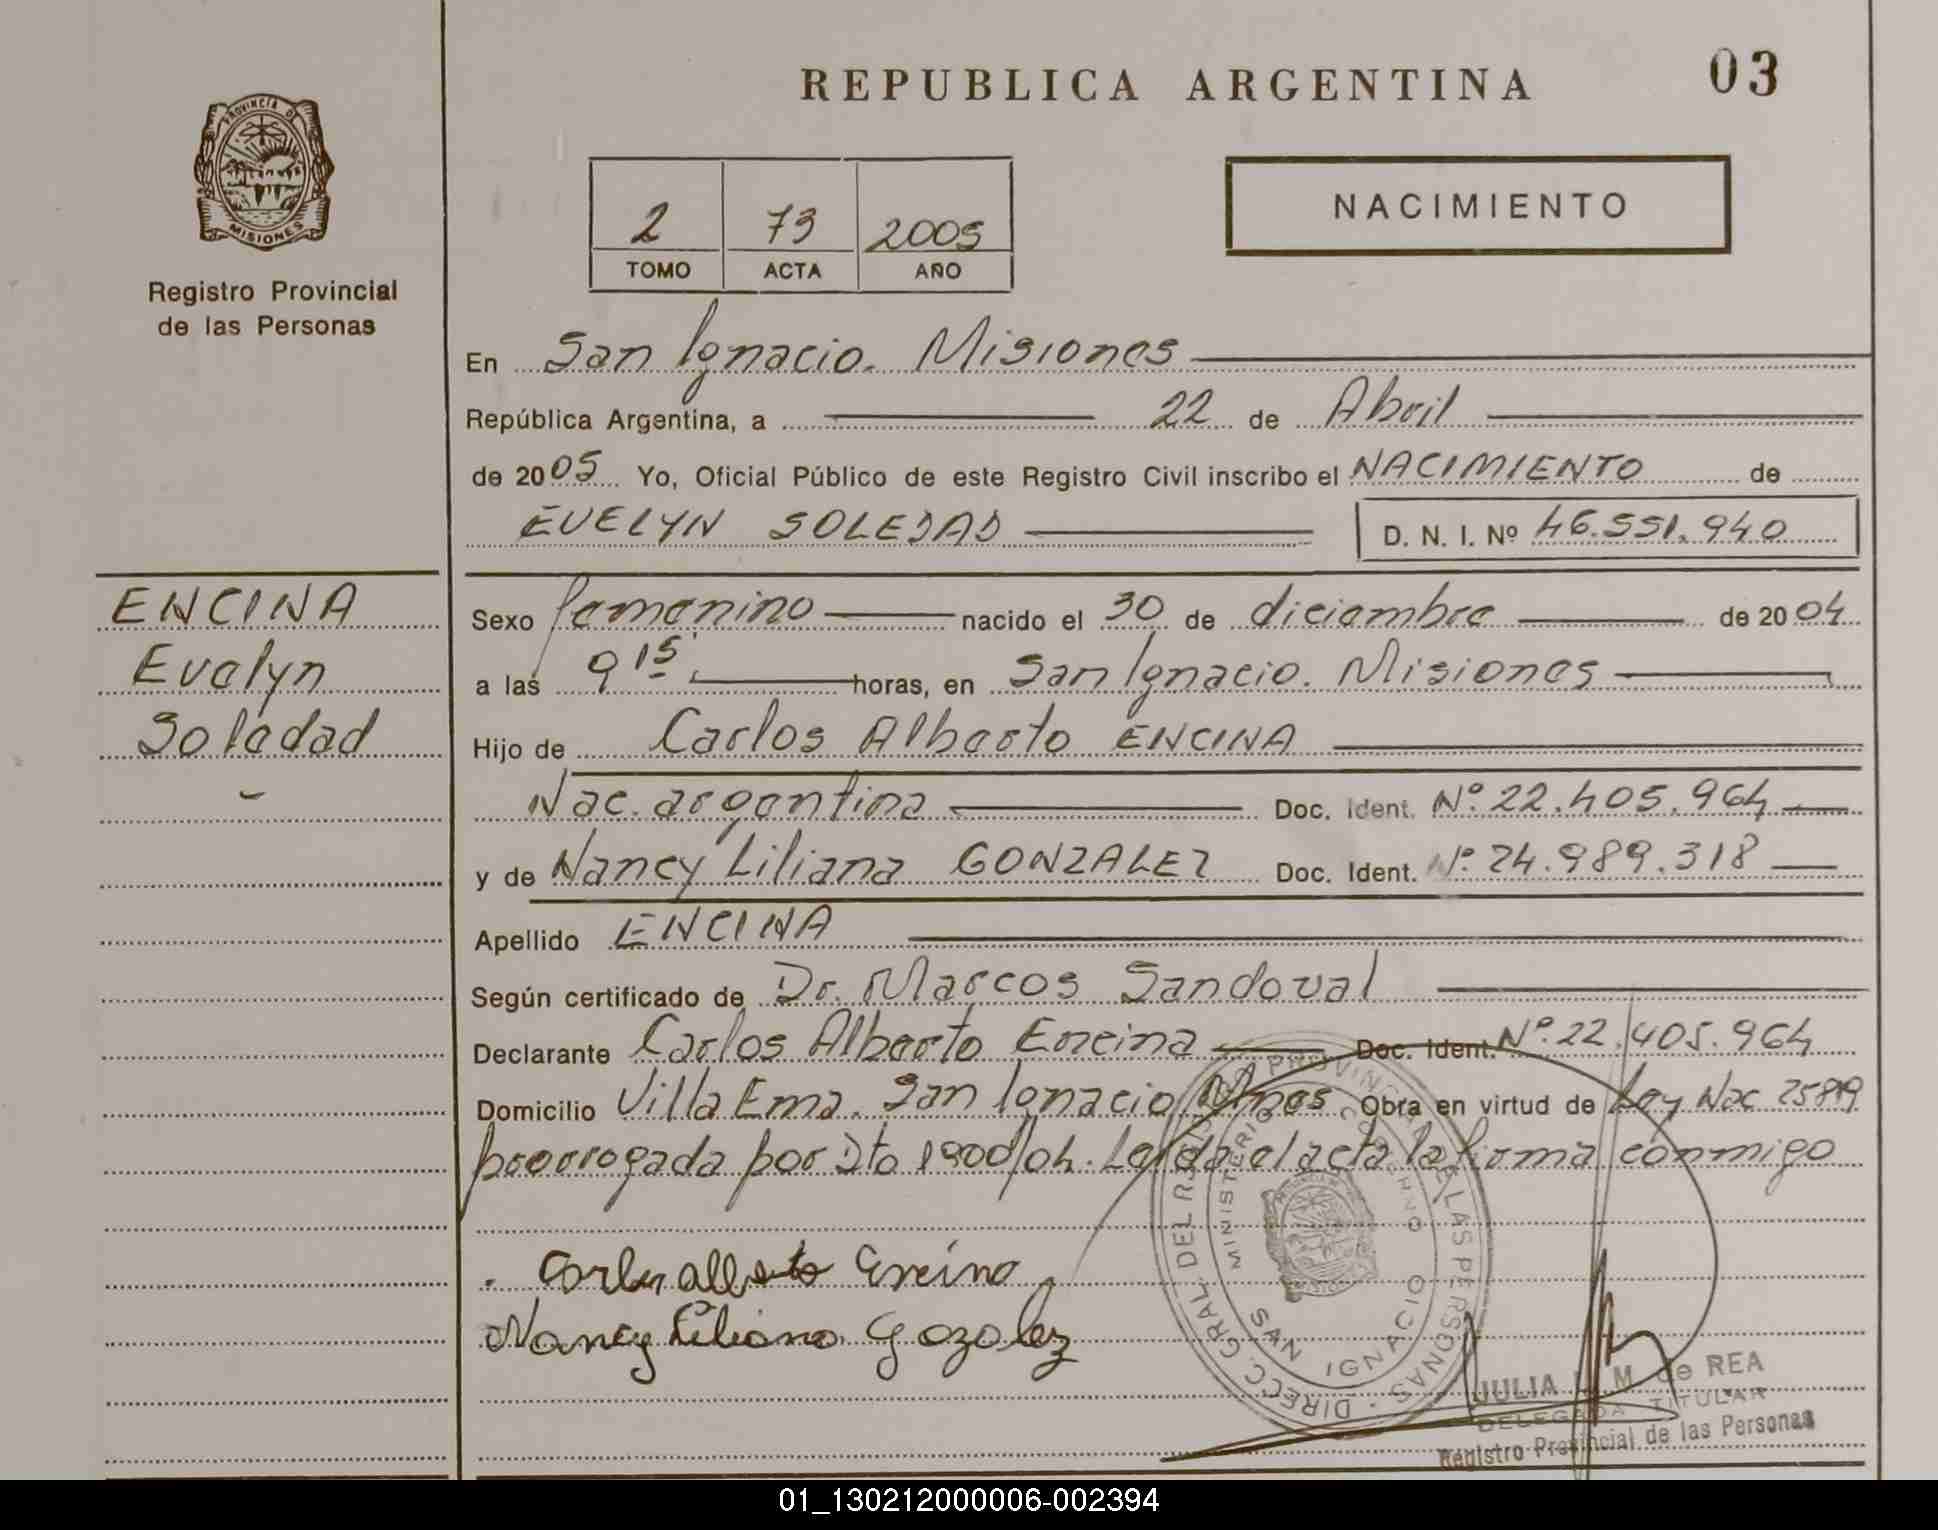 REPUBLICA ARGENTINA 03
PROVINCIA D
MISIONES
Registro Provincial
de las Personas
2 73 2005
TOMO ACTA AÑO
NACIMIENTO
En San Ignacio. Misiones
República Argentina, a 22 de Abril
de 2005 Yo, Oficial Público de este Registro Civil inscribo el NACIMIENTO de
EVELYN SOLEDAD D. N. I. Nº 46.551.940
ENCINA
Evelyn
Soledad
Sexo femenino nacido el 30 de diciembre de 2004
a las 9 15 horas, en San Ignacio. Misiones
Hijo de Carlos Alberto ENCINA
Nac. argentina Doc. Ident. Nº 22.405.964
y de Nancy Liliana GONZALEZ Doc. Ident. Nº 24.989.318
Apellido ENCINA
Según certificado de Dr. Marcos Sandoval
Declarante Carlos Alberto Encina Doc. Ident. Nº 22.405.964
Domicilio Villa Ema. San Ignacio Mnes. Obra en virtud de Ley Nac 25819
prorrogada por Dto 1900/04. Leída el acta la firma conmigo
Carlos alberto Encina
Nancy Liliana Gozalez
DIRECC. GRAL. DEL REGISTRO PROVINCIAL DE LAS PERSONAS
MINISTERIO GOBIERNO
SAN IGNACIO
JULIA M. de REA
DELEGADA TITULAR
Registro Provincial de las Personas
01_130212000006-002394